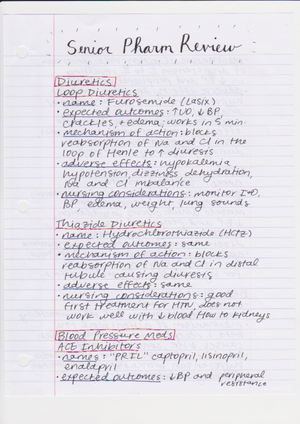 Senior Pharm Review
Diuretics
Loop Diuretics
• name: Furosemide (Lasix)
• expected outcomes: ↑UO, ↓BP,
crackles, + edema; works in 5 min
• mechanism of action: blocks
reabsorption of Na and Cl in the
loop of Henle to ↑ diuresis
• adverse effects: hypokalemia
hypotension, dizziness, dehydration,
Na and Cl imbalance
• nursing considerations: monitor I+O,
BP, edema, weight, lung sounds
Thiazide Diuretics
• name: Hydrochlorothiazide (HCTZ)
• expected outcomes: same
• mechanism of action: blocks
reabsorption of Na and Cl in distal
tubule causing diuresis
• adverse effects: same
• nursing considerations: good
first treatment for HTN, does not
work well with ↓ blood flow to kidneys
Blood Pressure Meds
ACE Inhibitors
• names: "PRIL" captopril, lisinopril,
enalapril
• expected outcomes: ↓BP and peripheral
resistance